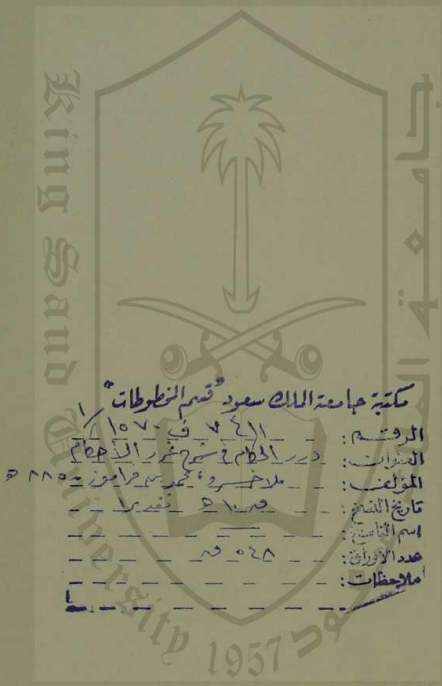 King Saud University
جامعة الملك سعود
مكتبة جامعة الملك سعود "قسم المخطوطات"
الرقم: ٧٤١١ ف ١٥٧٠/١
العنوان: درر الحكام في شرح غرر الأحكام
المؤلف: ملا خسرو، محمد بن فراموز - ٨٨٥ هـ
تاريخ النسخ: ق ١٠ هـ تقديرا
اسم الناسخ:
عدد الأوراق: ٥٤٨ ق
ملاحظات:
1957